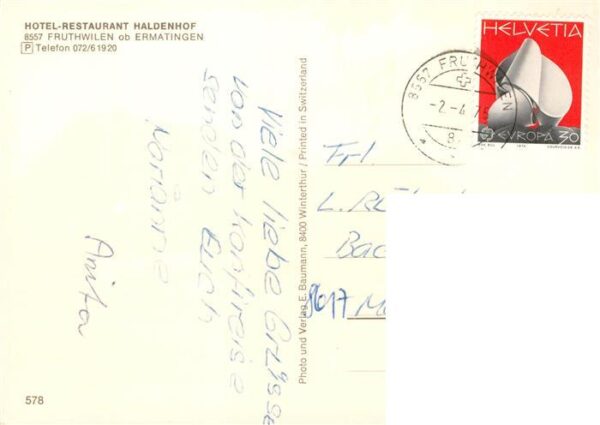 HOTEL-RESTAURANT HALDENHOF
8557 FRUTHWILEN ob ERMATINGEN
P Telefon 072/6 19 20
Viele liebe Grüsse
von der
senden Euch
Marianne
Anita
578
Photo und Verlag E. Baumann, 8400 Winterthur / Printed in Switzerland
HELVETIA
EUROPA 30
8557 FRUTHWILEN
-2.-4.75
Frl
L.
Bac
8617 M